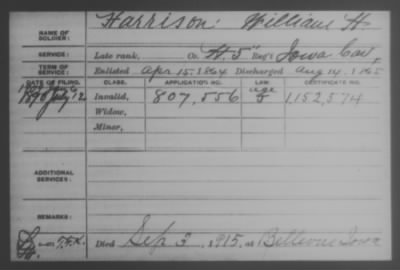 NAME OF SOLDIER: Harrison, William H.
SERVICE: Late rank, Co. H. 5" Reg't Iowa Cav,
TERM OF SERVICE: Enlisted Apr 15, 1864 Discharged Aug 1865
DATE OF FILING. CLASS. APPLICATION NO. LAW. CERTIFICATE NO.
July 12 Invalid, 807,556 1,152,574
Widow,
Minor,
ADDITIONAL SERVICES:
REMARKS:
Died Sep 3, 1915, at Bellevue Iowa